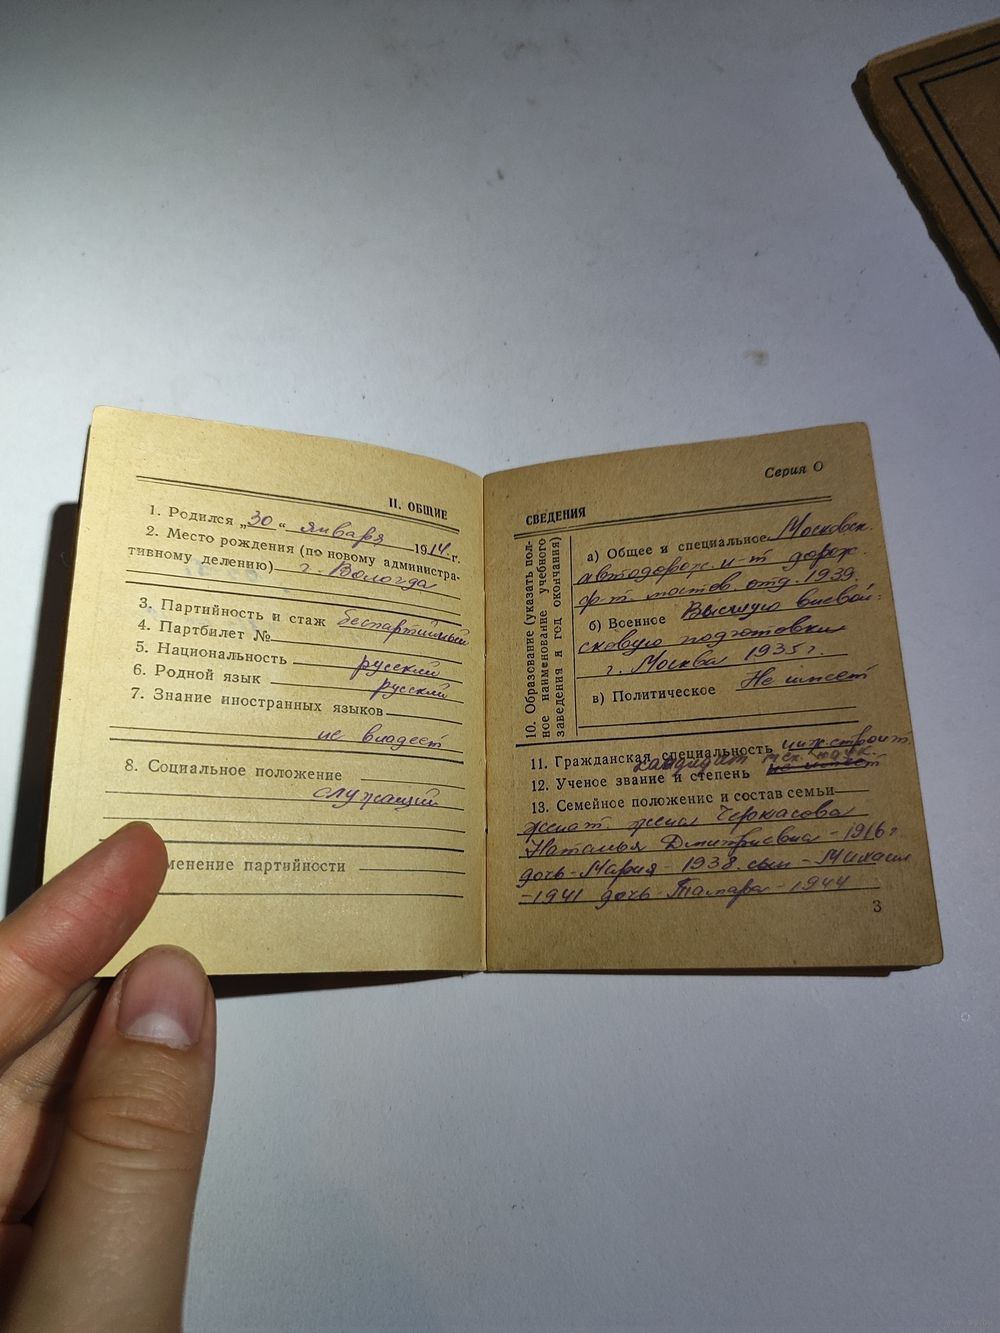 II. ОБЩИЕ
1. Родился „30“ января 1914 г.
2. Место рождения (по новому администра-
тивному делению) г. Вологда
3. Партийность и стаж беспартийный
4. Партбилет №
5. Национальность русский
6. Родной язык русский
7. Знание иностранных языков
не владеет
8. Социальное положение
служащий
менение партийности
Серия О
СВЕДЕНИЯ
10. Образование (указать пол-
ное наименование учебного
заведения и год окончания)
а) Общее и специальное Московск.
автодорож. и-т дорож.
ф-т мостов. отд. 1939.
б) Военное Высшую вневой-
сковую подготовки
г. Москва 1935 г.
в) Политическое Не имеет
11. Гражданская специальность инж. строит.
кандидат тех. наук.
12. Ученое звание и степень не имеет
13. Семейное положение и состав семьи
женат. жена Черкасова
Наталья Дмитриевна - 1916 г
дочь - Мария - 1938. сын - Михаил
- 1941 дочь - Тамара - 1944
3